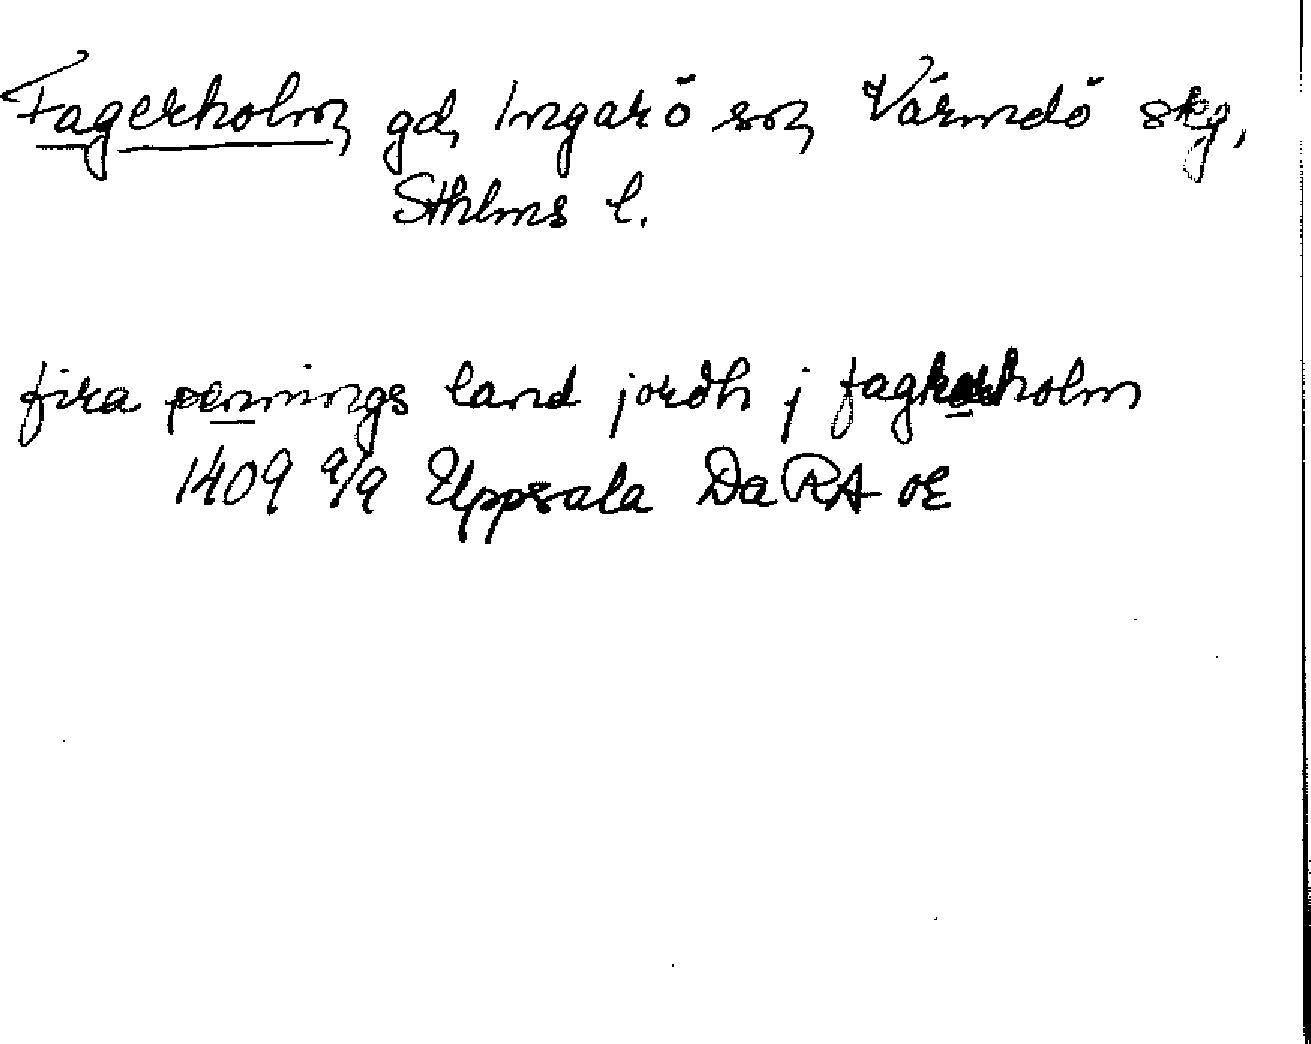 Fagerholm, gd, Ingarö sn, Värmdö skg,
Sthlms l.
fira pennings land jordh j fagherholm
1409 9/9 Uppsala Da RA OE